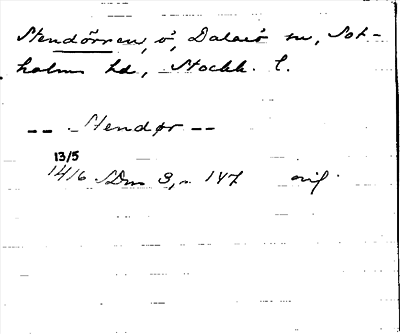 Stendörren, ö, Dalarö sn, Sot-
holms hd, Stockh. l.
-- Stendør --
13/5
1416 SDns 3, s. 147 orig.